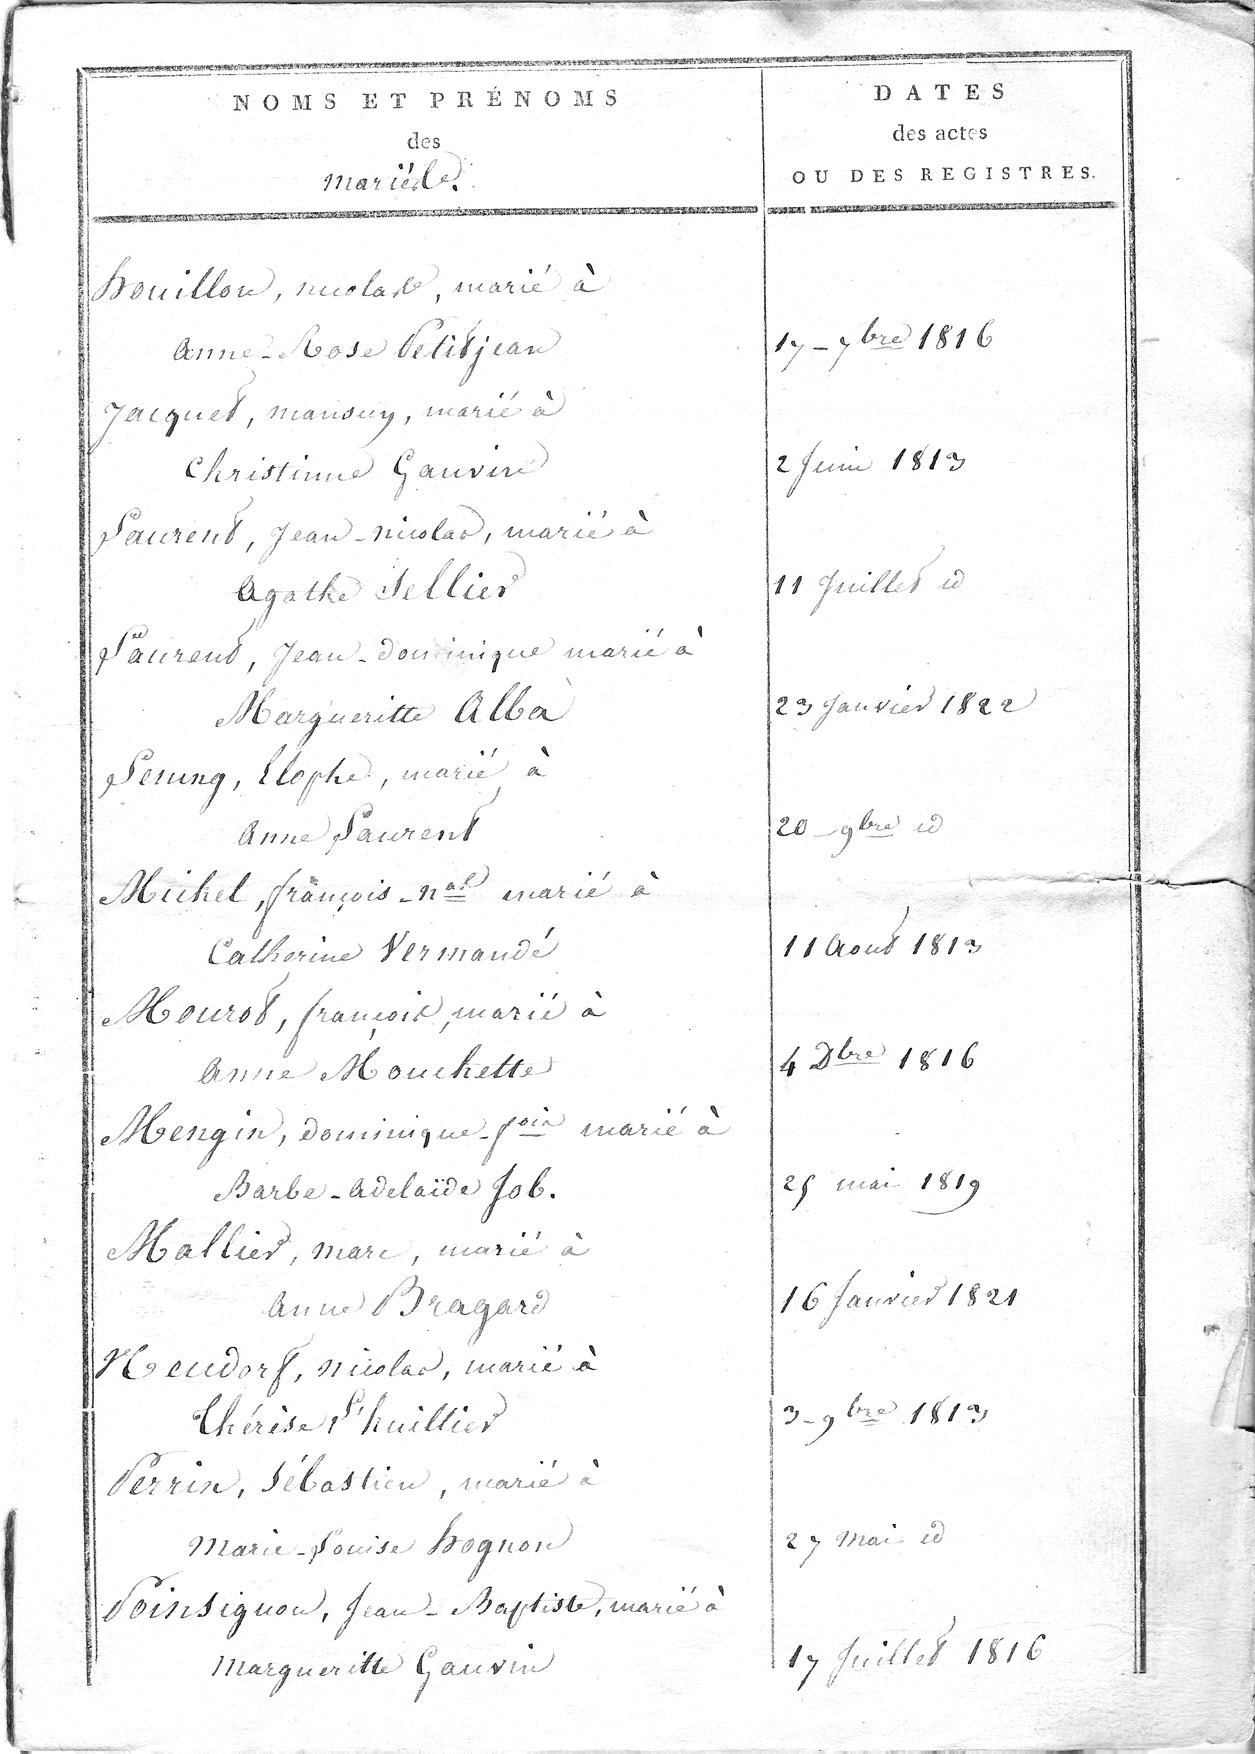 NOMS ET PRÉNOMS
des
mariés.
DATES
des actes
OU DES REGISTRES.
houillon, nicolas, marié à
Anne-Rose Petitjean 17-7bre 1816
Jacquet, mansuy, marié à
Christinne Gauvin 2 Juin 1813
Laurent, Jean-nicolas, marié à
Agathe Sellier 11 Juillet id
Laurent, Jean-dominique marié à
Margueritte Alba 23 Janvier 1822
Elophe, marié à
Anne Laurent 20-9bre id
Michel, françois-nas marié à
Catherine Vermandé 11 Aout 1813
Mourot, françois, marié à
Anne Mouchette 4 Dbre 1816
Mengin, dominique-fois marié à
Barbe-Adelaïde Job. 25 mai 1819
Mallier, marc, marié à
Anne Bragard 16 Janvier 1821
Neudorf, nicolas, marié à
Thérèse L'huillier 3-9bre 1813
Perrin, Sébastien, marié à
Marie-Louise hognon 27 Mai id
Poinsignon, Jean-Baptiste, marié à
Margueritte Gauvin 17 Juillet 1816